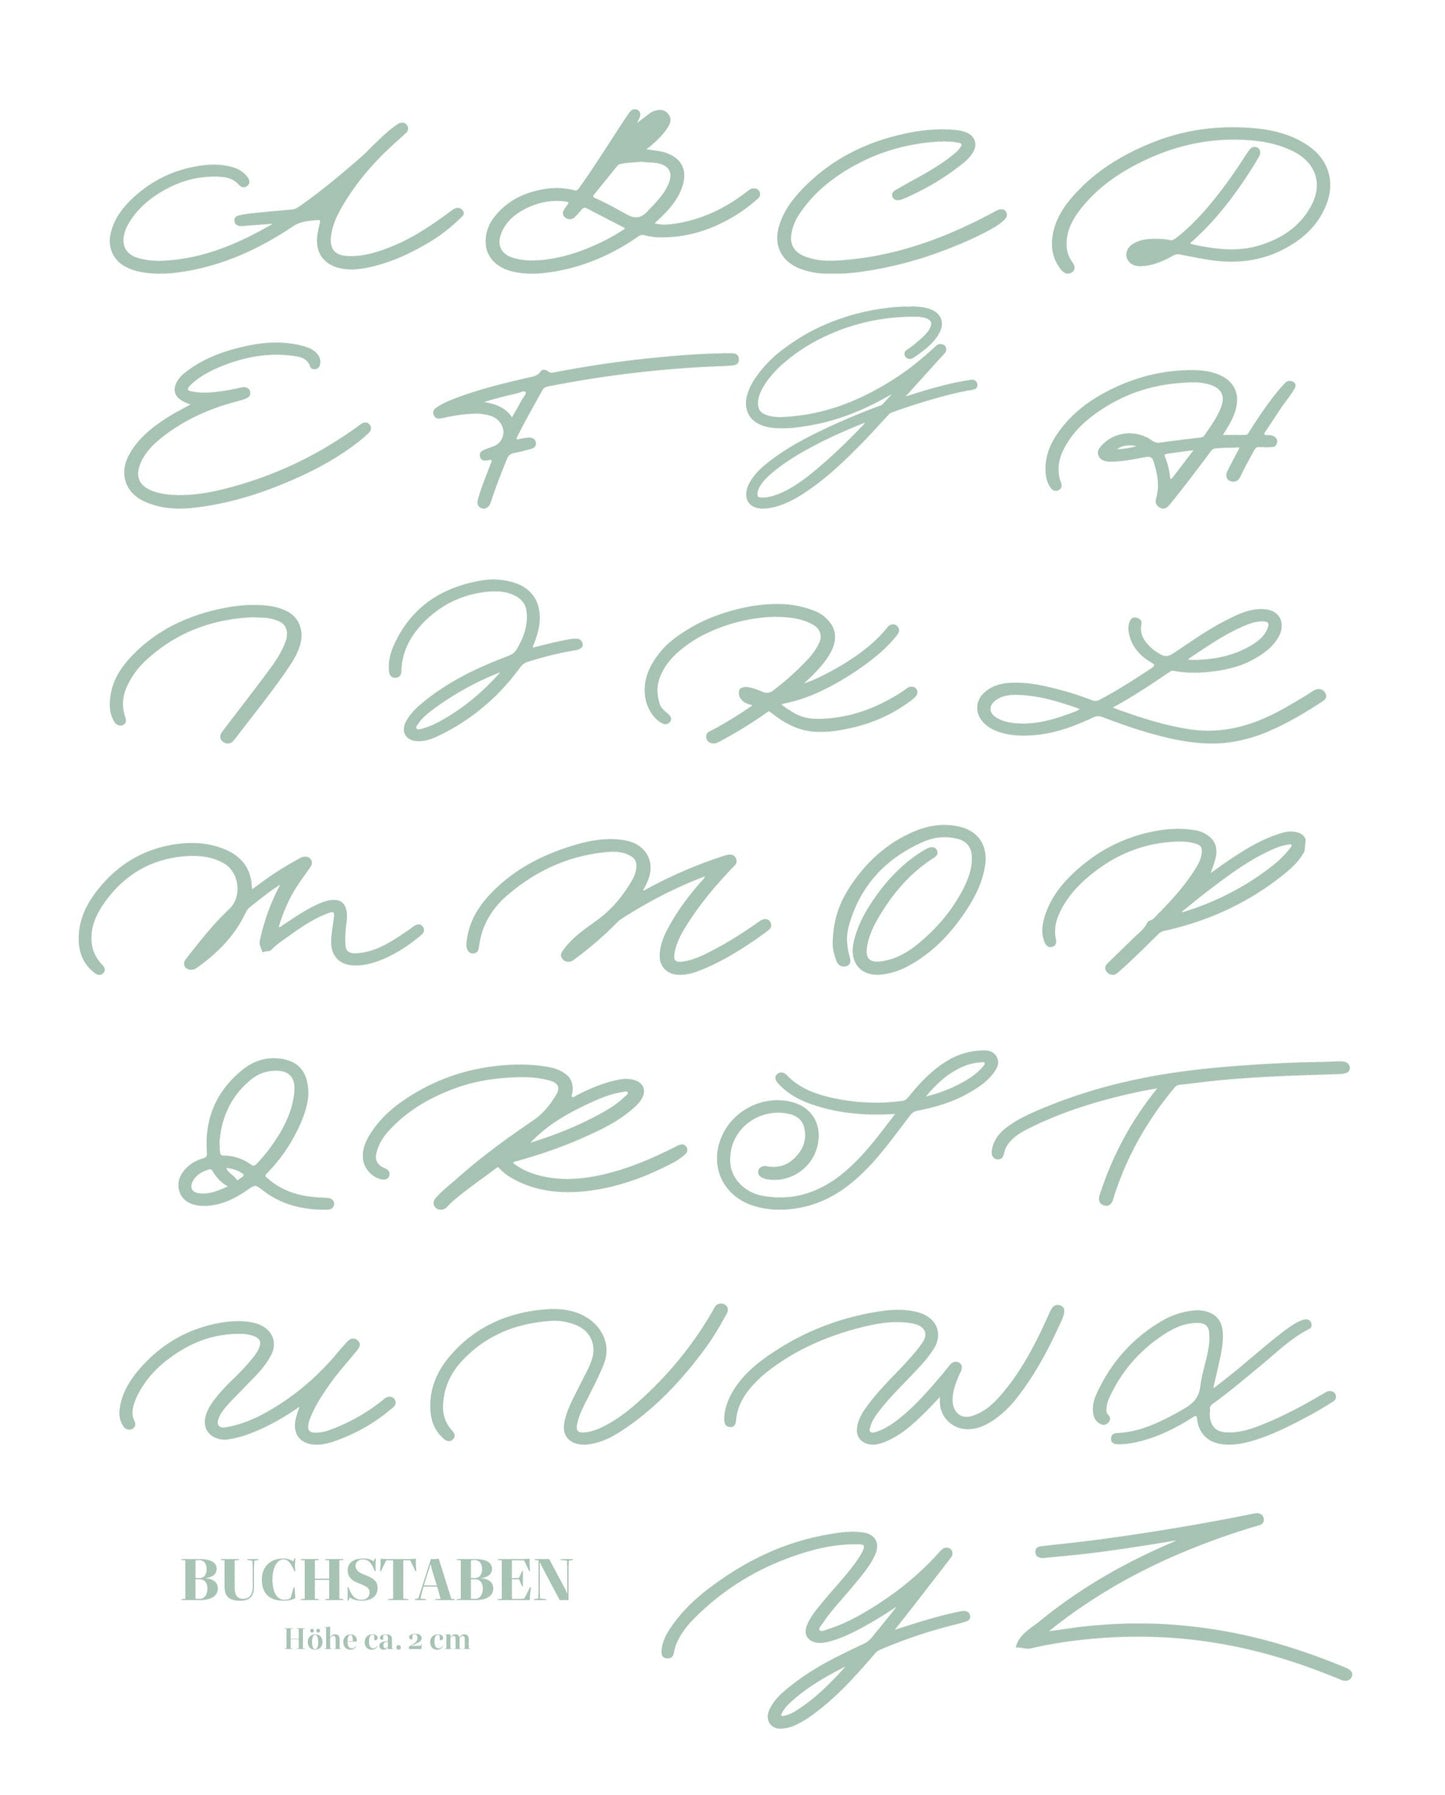 A B C D
E F G H
I J K L
M N O P
Q R S T
U V W X
Y Z
BUCHSTABEN
Höhe ca. 2 cm